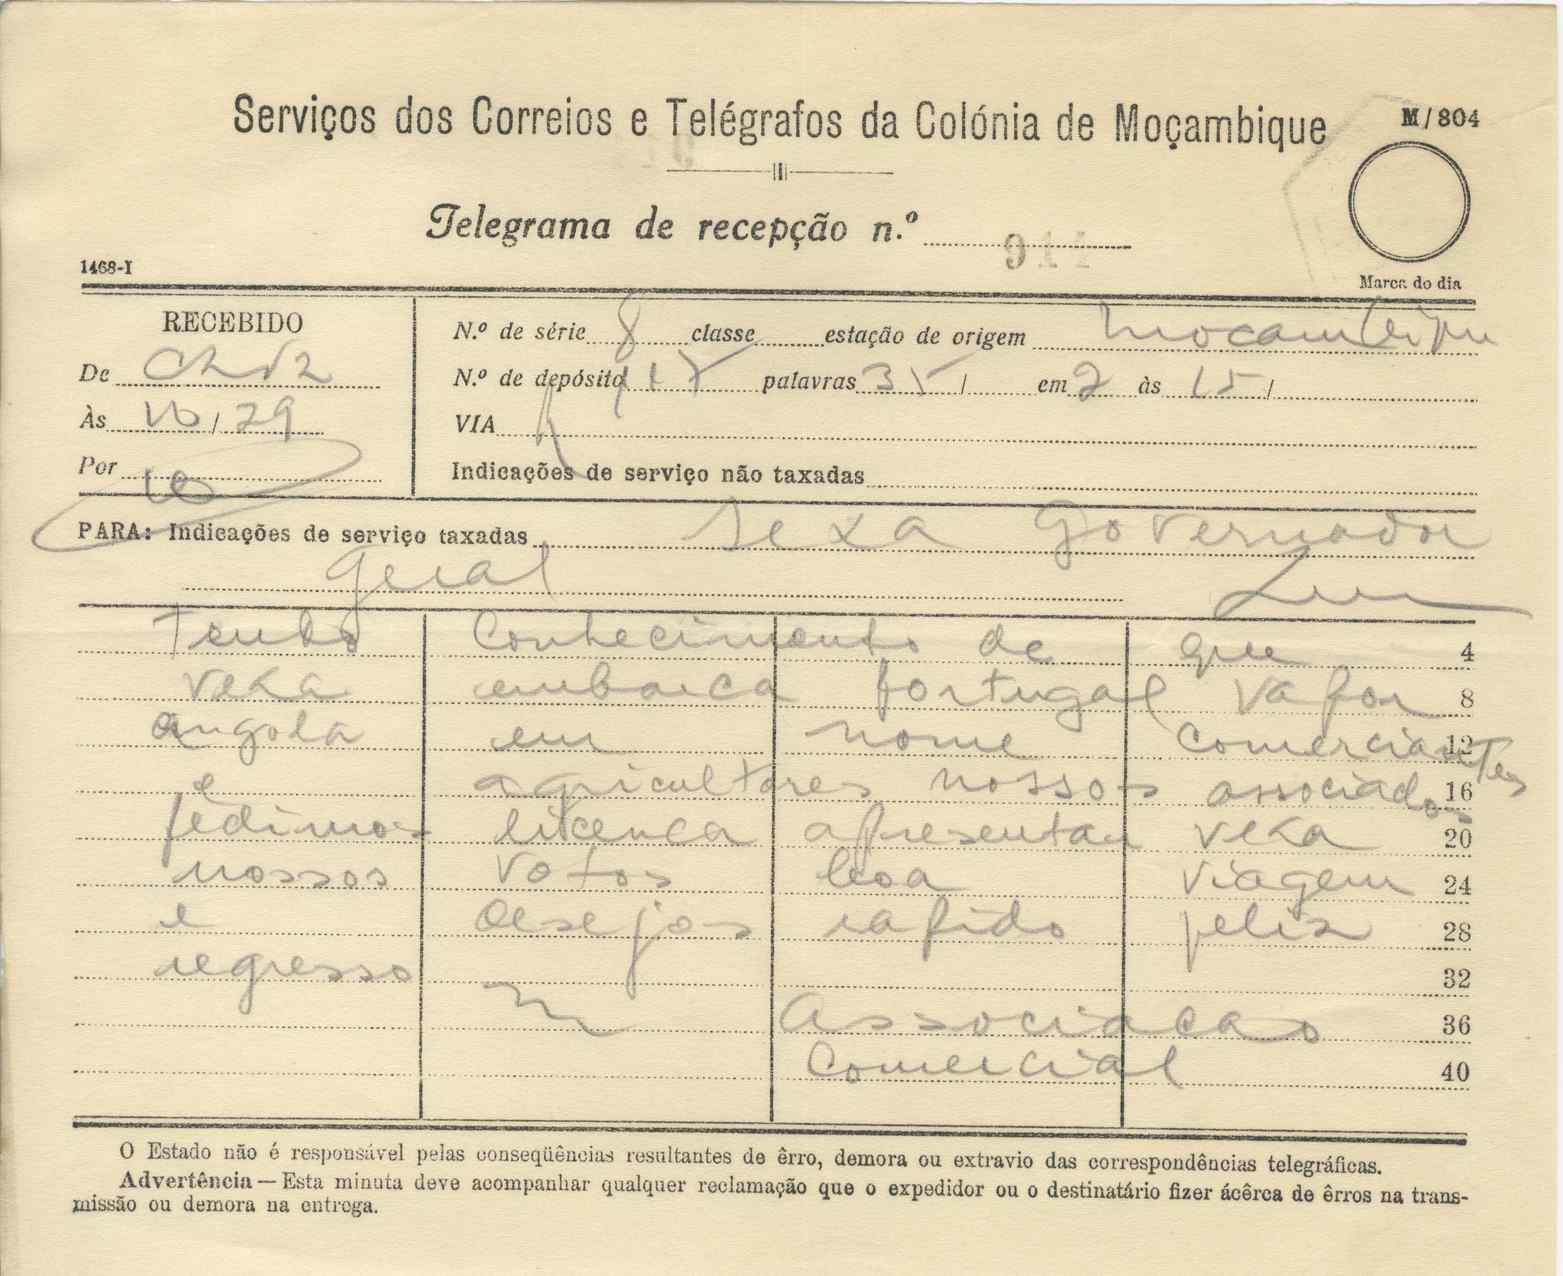 Serviços dos Correios e Telégrafos da Colónia de Moçambique
M/804
Telegrama de recepção n.º 911
Marca do dia
1468-I
RECEBIDO
De
Às 10/29
Por
N.º de série 8 classe estação de origem Mocambique
N.º de depósito 117 palavras 35/ em 2 às 15/
VIA
Indicações de serviço não taxadas
PARA: Indicações de serviço taxadas sexa Governador
Geral
Tendo conhecimento de que 4
vexa embarca portugal vapor 8
angola em nome comerciantes 12
e agricultores nossos associados 16
pedimos licenca apresentar vexa 20
nossos votos boa viagem 24
e desejos rapido feliz 28
regresso 32
Associacao 36
Comercial 40
O Estado não é responsável pelas conseqüências resultantes de êrro, demora ou extravio das correspondências telegráficas.
Advertência — Esta minuta deve acompanhar qualquer reclamação que o expedidor ou o destinatário fizer ácêrca de êrros na trans-
missão ou demora na entrega.